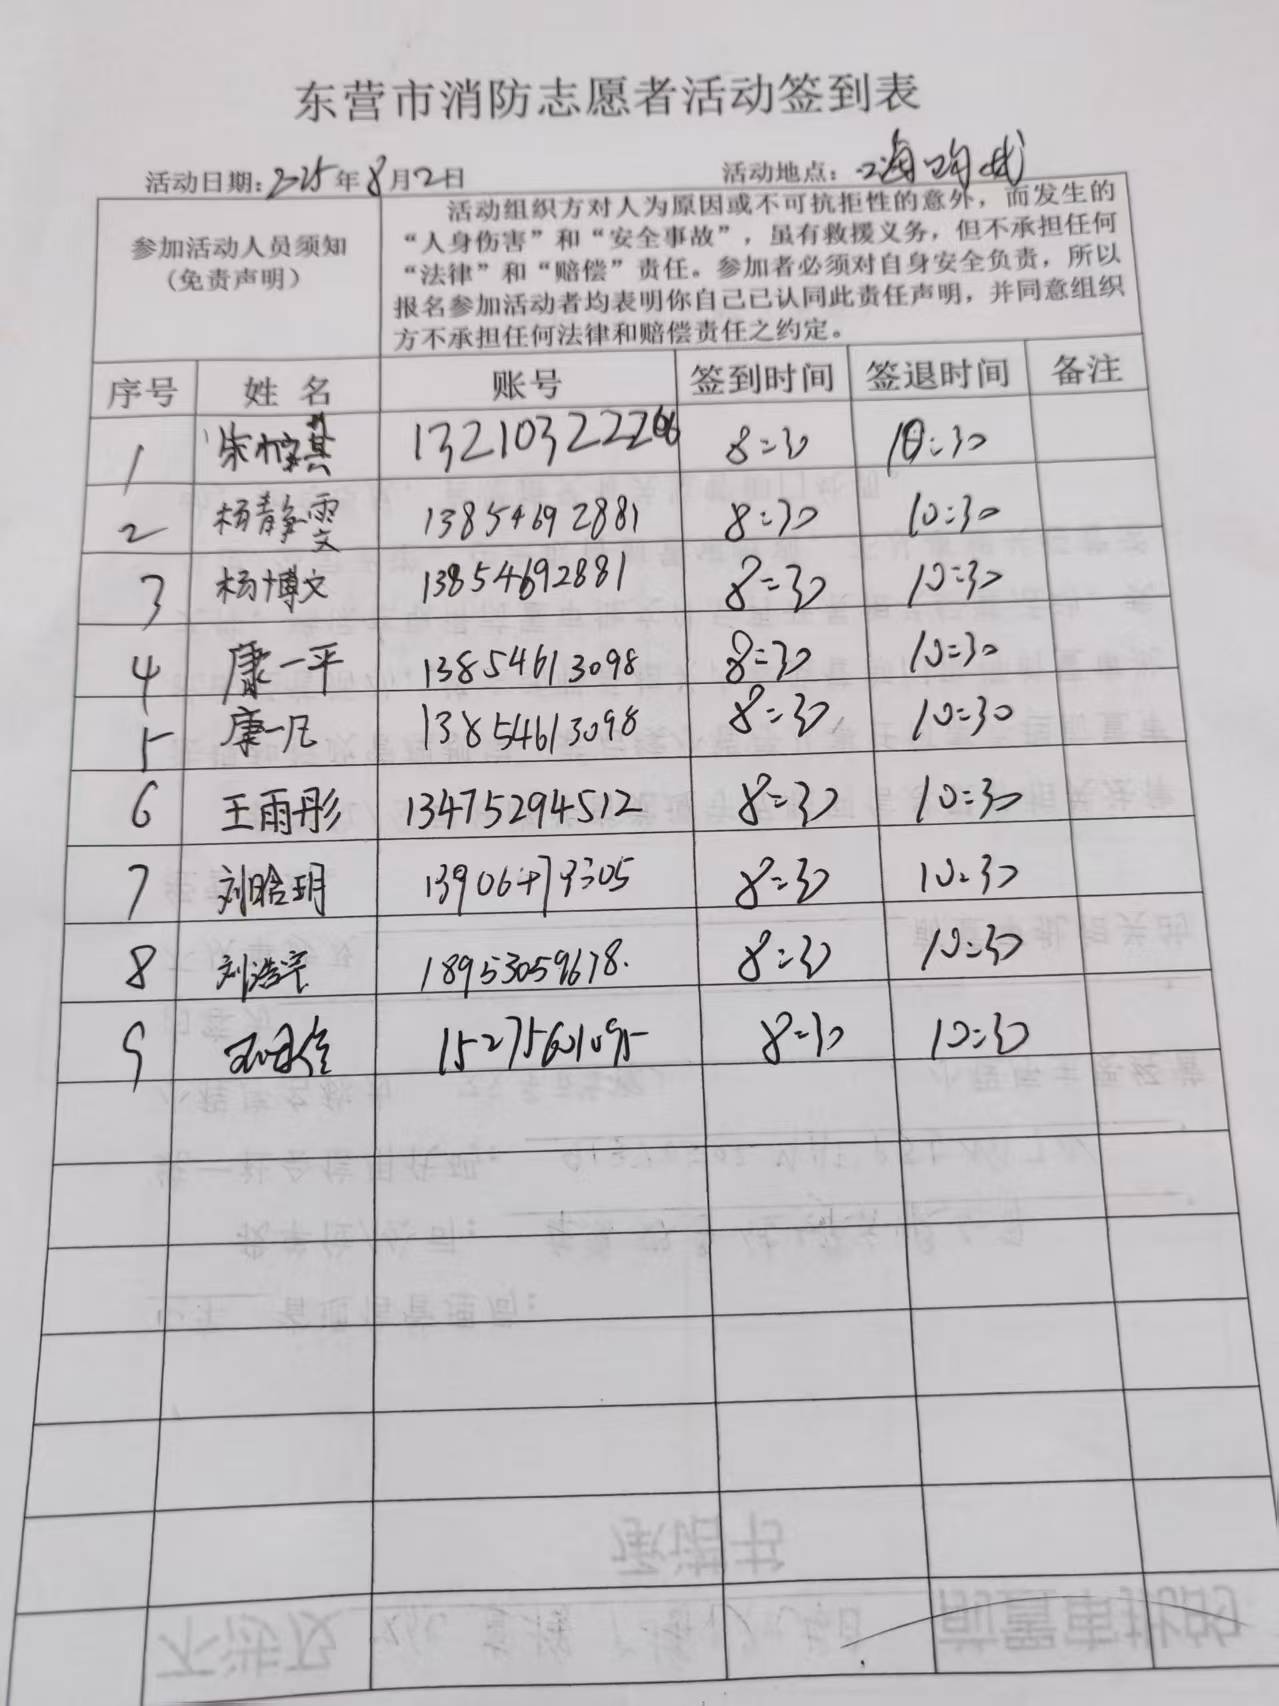 东营市消防志愿者活动签到表
活动日期：2025年8月2日 活动地点：
参加活动人员须知
（免责声明）
活动组织方对人为原因或不可抗拒性的意外，而发生的
“人身伤害”和“安全事故”，虽有救援义务，但不承担任何
“法律”和“赔偿”责任。参加者必须对自身安全负责，所以
报名参加活动者均表明你自己已认同此责任声明，并同意组织
方不承担任何法律和赔偿责任之约定。
序号 姓 名 账号 签到时间 签退时间 备注
1 13210322266 8:30 10:30
2 杨静雯 13854692881 8:30 10:30
3 杨博文 13854692881 8:30 10:30
4 康一平 13854613098 8:30 10:30
5 康一凡 13854613098 8:30 10:30
6 王雨彤 13475294512 8:30 10:30
7 刘晗玥 8:30 10:30
8 刘浩宇 18953059678. 8:30 10:30
9 8:30 10:30